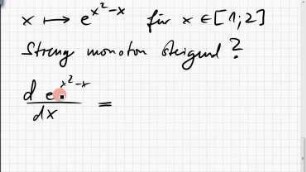 x ↦ e^{x²-x} für x ∈ [1;2]
Streng monoton steigend?
d e^{x²-x} / dx =